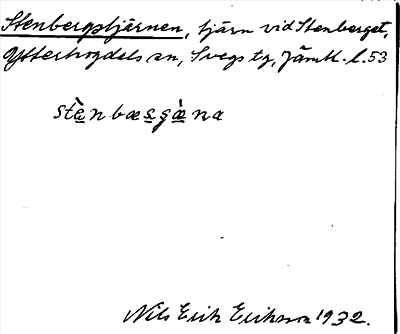 Stenbergstjärnen, tjärn vid Stenberget,
Ytterhogdals sn, Svegs tg, Jämtl. l. 53
stæ̀nbæsgæ̀na
Nils Erik Eriksson 1932.